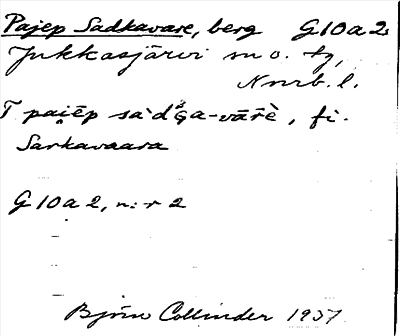 Pajep Sadkavare, berg G10a2.
Jukkasjärvi sn o. tg,
Nnrb. l.
T pai̯ēp sa`dǥa-vārè, fi.
Sarkavaara
G10a2, n:r 2
Björn Collinder 1937